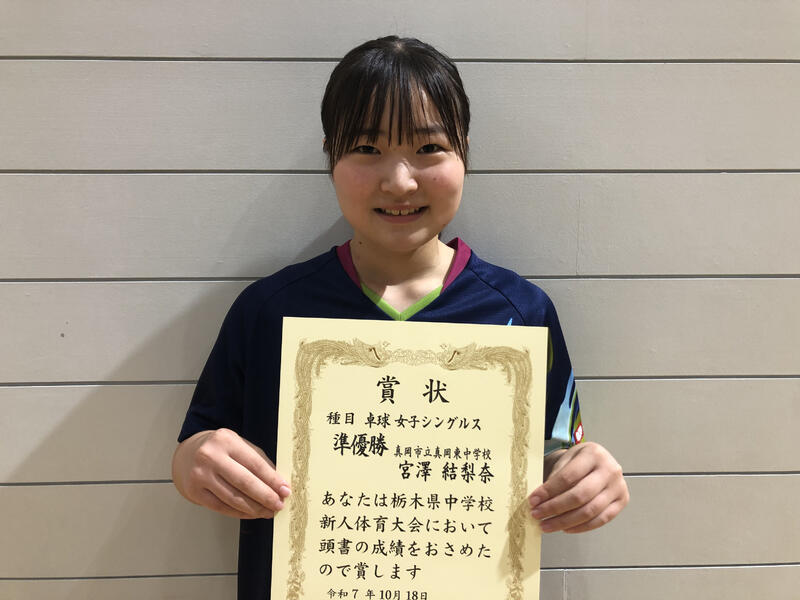 賞状
種目 卓球 女子シングルス
準優勝 真岡市立真岡東中学校
宮澤 結梨奈
あなたは栃木県中学校
新人体育大会において
頭書の成績をおさめた
ので賞します
令和7年10月18日